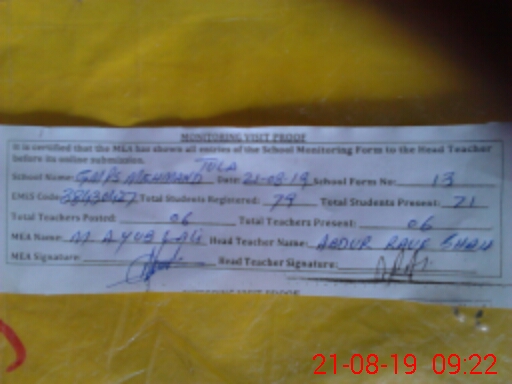 MONITORING VISIT PROOF
It is certified that the MEA has shown all entries of the School Monitoring Form to the Head Teacher
before its online submission.
TOLA
School Name: GMPS MEHMAND Date: 21-08-19 School Form No: 13
EMIS Code: 38430127 Total Students Registered: 79 Total Students Present: 71
Total Teachers Posted: 06 Total Teachers Present: 06
MEA Name: M AYUB ALI Head Teacher Name: ABDUR RAUF SHAH
MEA Signature: Head Teacher Signature:
MONITORING VISIT PROOF
21-08-19 09:22